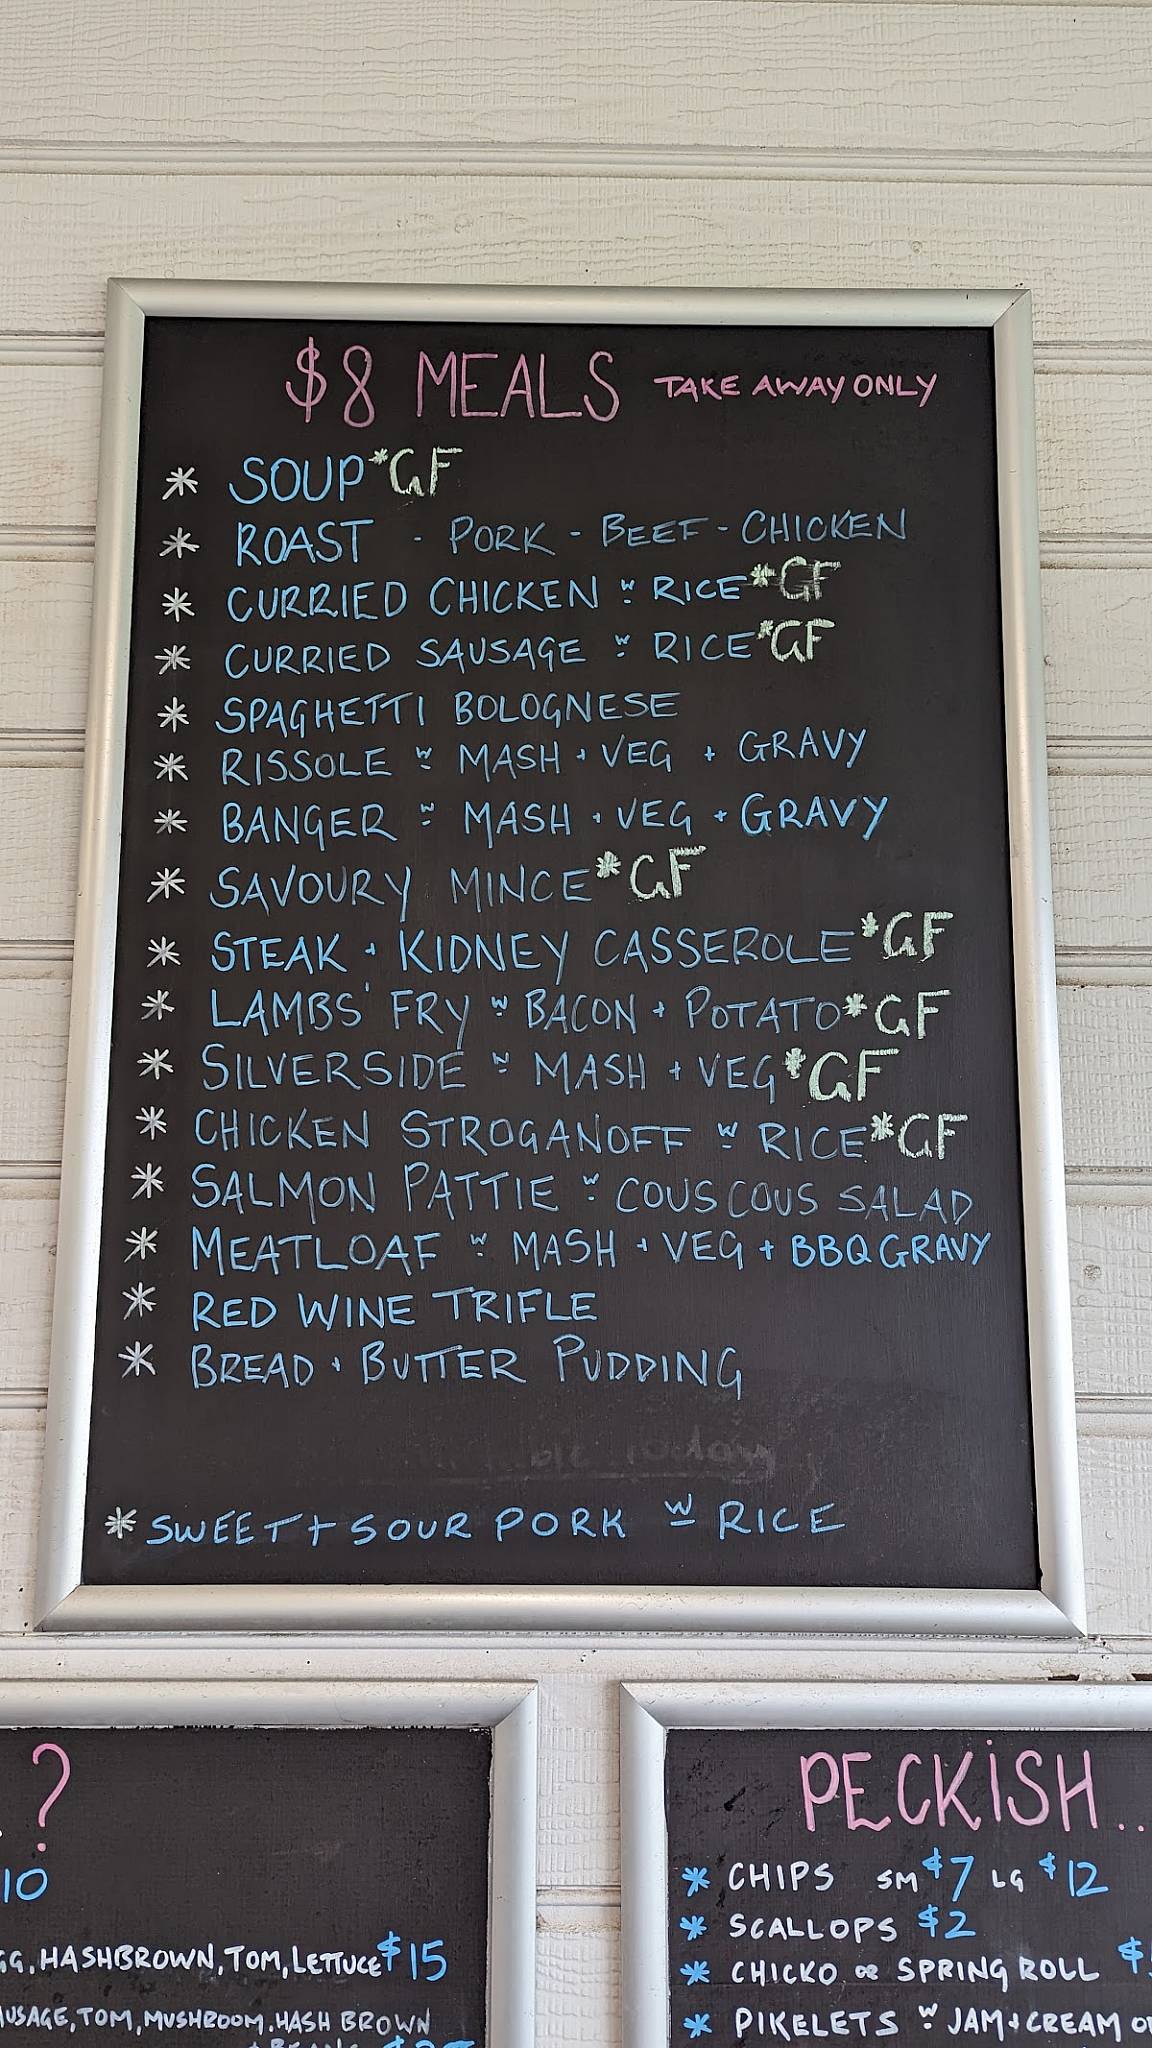 $8 MEALS TAKE AWAY ONLY
* SOUP *GF
* ROAST - PORK - BEEF - CHICKEN
* CURRIED CHICKEN w RICE *GF
* CURRIED SAUSAGE w RICE *GF
* SPAGHETTI BOLOGNESE
* RISSOLE w MASH + VEG + GRAVY
* BANGER w MASH + VEG + GRAVY
* SAVOURY MINCE *GF
* STEAK + KIDNEY CASSEROLE *GF
* LAMBS' FRY w BACON + POTATO *GF
* SILVERSIDE w MASH + VEG *GF
* CHICKEN STROGANOFF w RICE *GF
* SALMON PATTIE w COUSCOUS SALAD
* MEATLOAF w MASH + VEG + BBQ GRAVY
* RED WINE TRIFLE
* BREAD + BUTTER PUDDING
Today
* SWEET + SOUR PORK w RICE
?
10
HASHBROWN, TOM, LETTUCE $15
TOM, MUSHROOM. HASH BROWN
PECKISH...
* CHIPS SM $7 LG $12
* SCALLOPS $2
* CHICKO OR SPRING ROLL $
* PIKELETS w JAM + CREAM